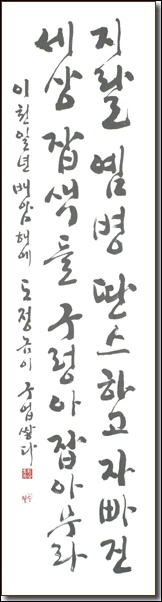 지랄 염병 딴스하고 자빠진
세상 잡색들 구렁아 잡아무라
이천일년 배암해에 도정금이 구업쌓다